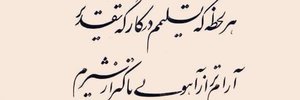 هر لحظه که تسلیمم در کارگه تقدیر
آرام‌تر از آهو بی باک‌ترم از شیر